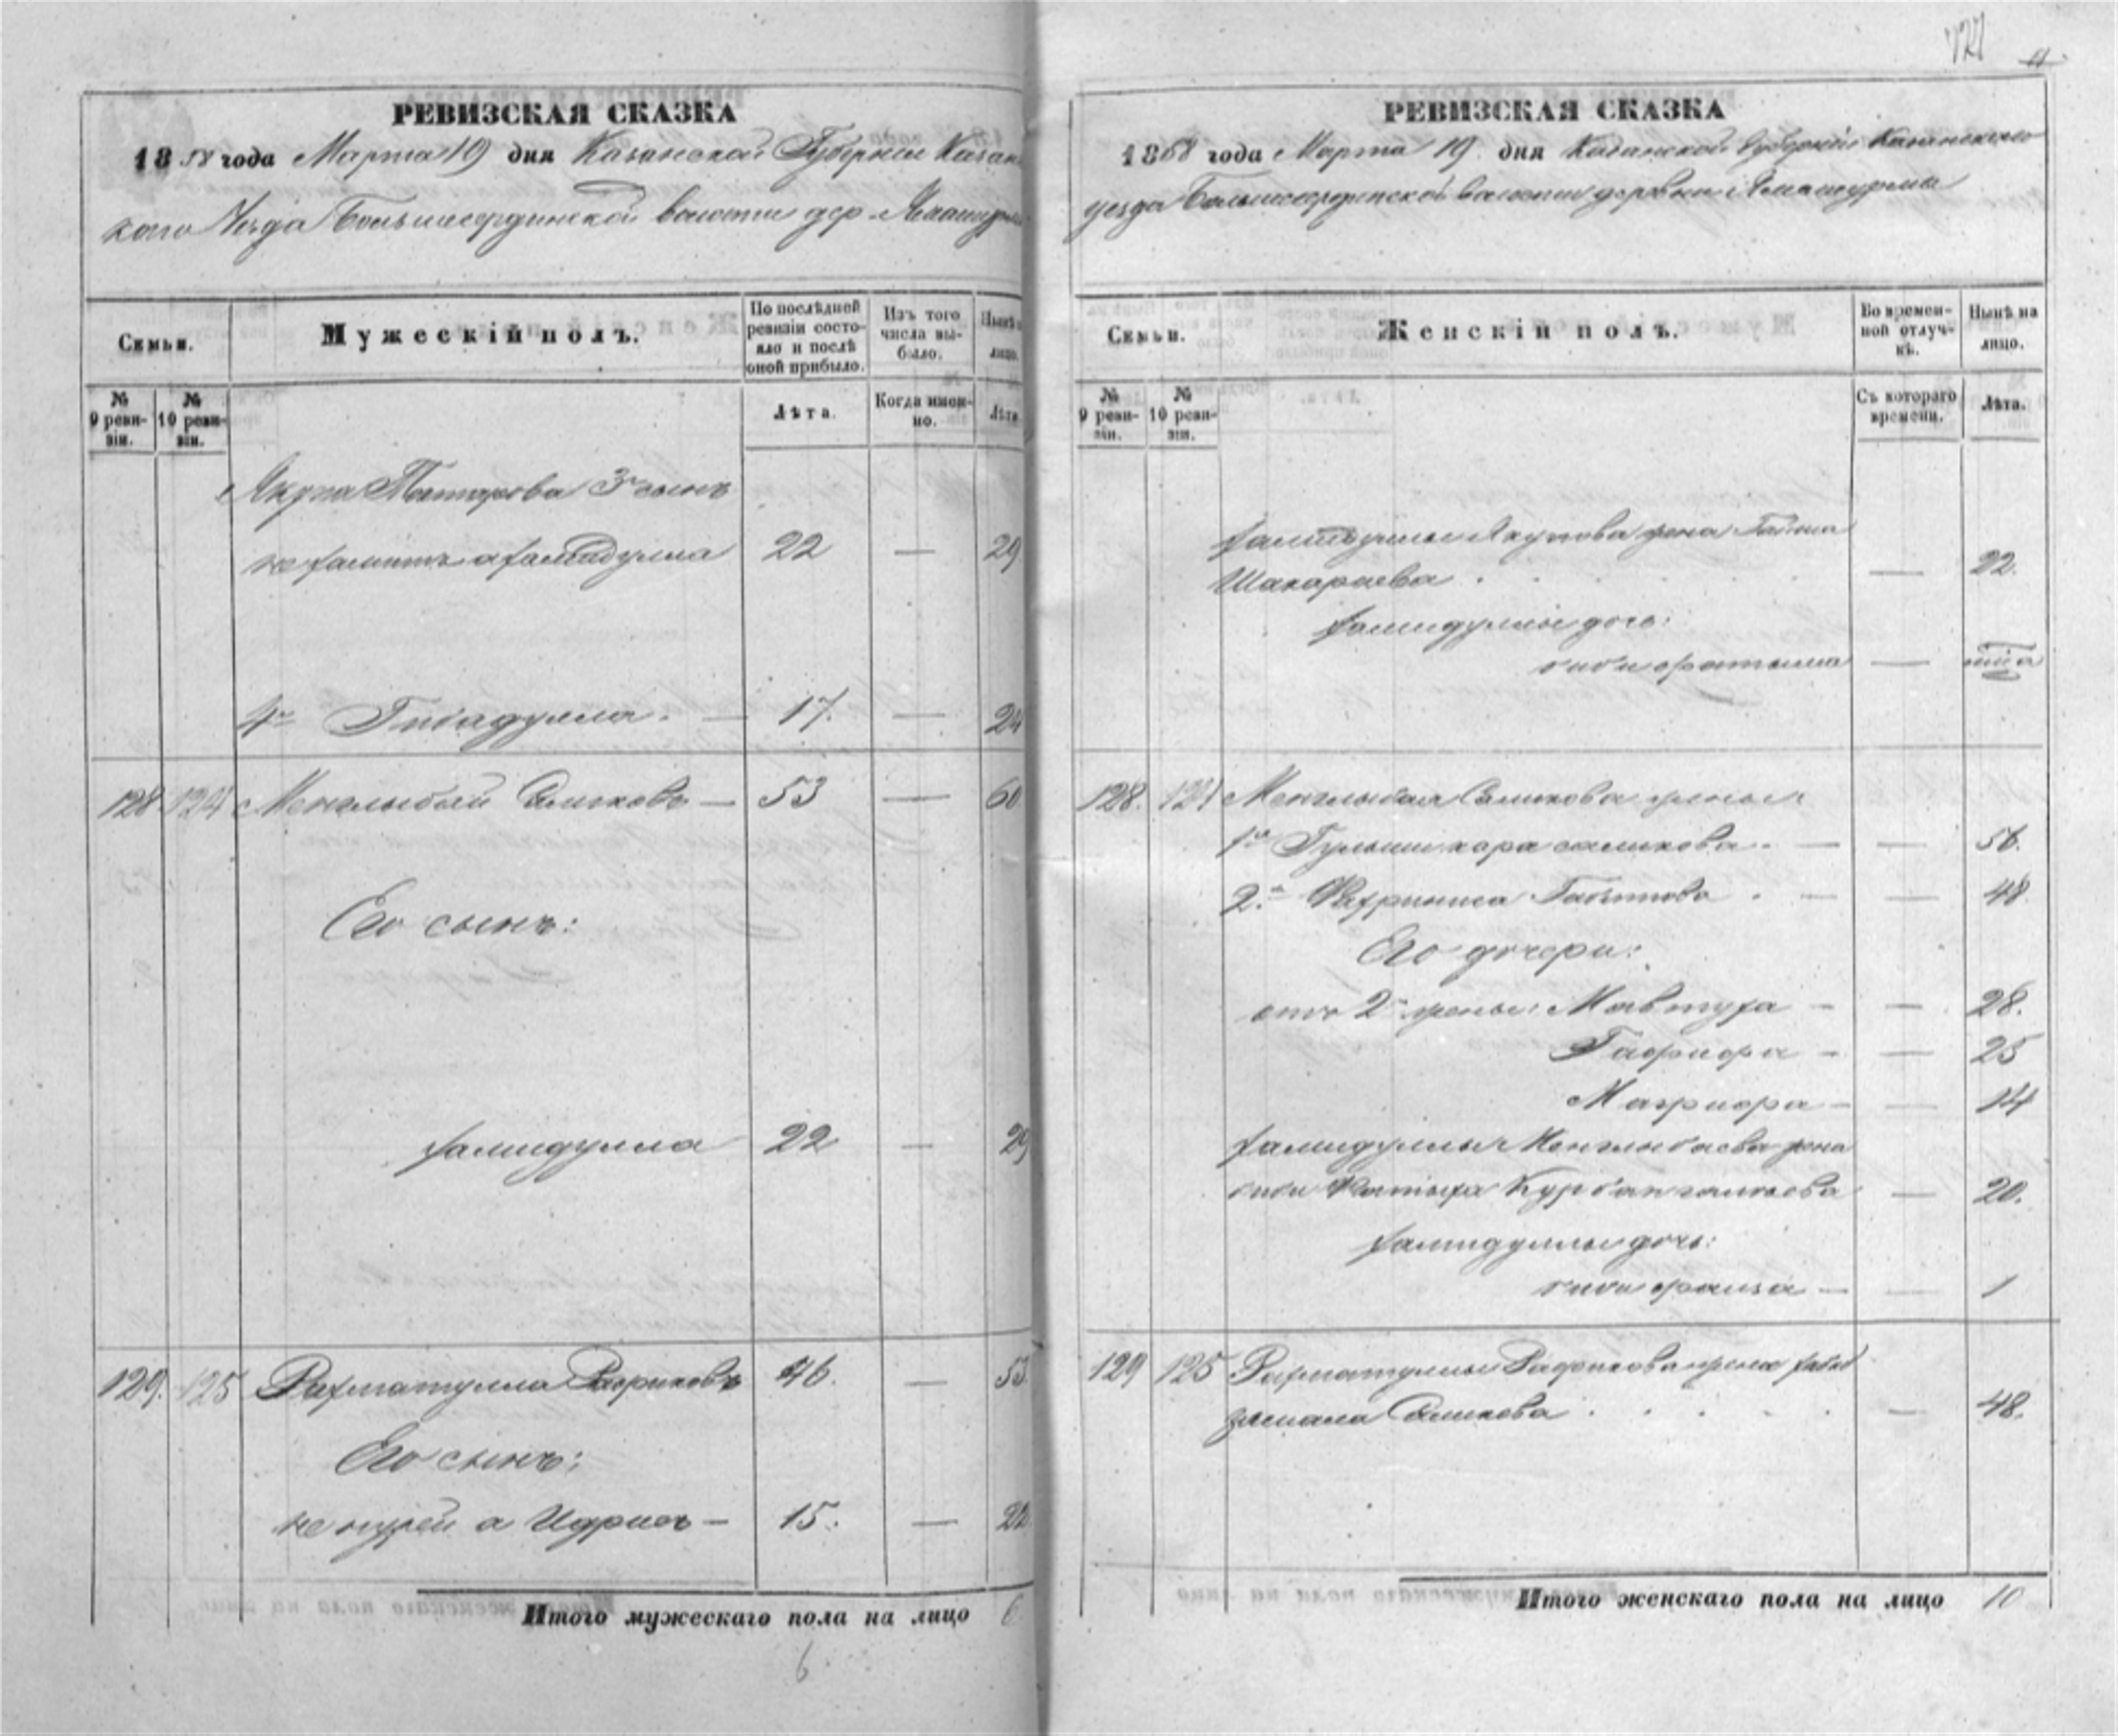 РЕВИЗСКАЯ СКАЗКА
1858 года Марта 19 дня Казанской Губернии Казан
скаго Уезда Большесердинской волости дер.
Семьи.
Мужескій полъ.
По послѣдней ревизіи состояло и послѣ оной прибыло.
Изъ того числа выбыло.
Нынѣ на лицо.
№ 9 ревизіи.
№ 10 ревизіи.
Лѣта.
Когда именно.
Лѣта
Якупа Татарова 3й сынъ
не фамитъ а Хамидулла 22 — 29
4й Гибадулла. — 17. — 24
128 124 Менглыбай Салиховъ — 53 — 60
Его сынъ:
Хамидулла 22 — 29
129. 125 Рахматулла Рафиковъ 46. — 53
Его сынъ:
не нурей а Идрисъ — 15. — 22
Итого мужескаго пола на лицо 6
6
727
РЕВИЗСКАЯ СКАЗКА
1858 года Марта 19 дня Казанской Губерніи Казанскаго
уезда Большесердинской волости деревни Ямашурмы
Семьи.
Женскій полъ.
Во временной отлучкѣ.
Нынѣ на лицо.
№ 9 ревизіи.
№ 10 ревизіи.
Съ котораго времени.
Лѣта.
Хамидуллы Якупова жена
— 22.
Хамидуллы дочь:
биби фатыма —
128. 124 Менглыбая Салихова жены:
1я салихова. — — 56.
2я — — 48
Его дочери:
отъ 2й жены: Мавтуха — — 28.
Гафифа — — 25
Магрифа — — 14
Хамидуллы Менглыбаева жена
биби Фатыха Курбангалиева — 20.
Хамидуллы дочь:
биби фаиза — — 1
129 125 Рахматуллы Рафикова жена
Салихова — 48.
Итого женскаго пола на лицо 10